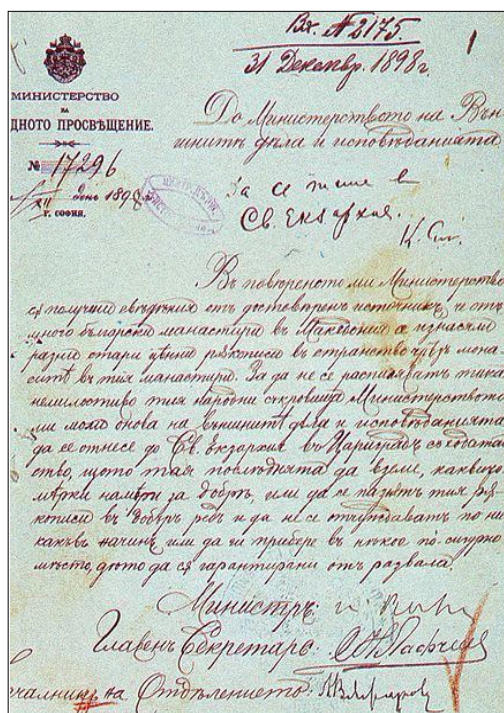 Вх. № 2175.
31 Декемвр. 1898 г.
1
МИНИСТЕРСТВО
НА
ДНОТО ПРОСВѢЩЕНИЕ.
До Министерството на Вън-
шнитѣ дѣла и исповѣданията
№ 17296
день 1898
Г. СОФИЯ.
За се пише в
Св. Екзархия.
Въ повѣреното ми Министерство
ся получили сведѣния отъ достовѣренъ источникъ, че отъ
много български манастири въ Македония се изнасяли
разни стари цѣнни рѫкописи въ странство чрѣзъ мона-
ситѣ въ тия манастири. За да не се распиляватъ така
немилостиво тия народни съкровища Министерството
ми моли онова на външнитѣ дѣла и исповѣданията
да се отнесе до Св. Екзархия въ Цариградъ съ ходатай-
ство, щото тая послѣднята да вземе, каквито
мѣрки намѣри за добрѣ, или да се пазятъ тия рѫ-
кописи въ добъръ редъ и да не се отчуждаватъ по ни-
какъвъ начинъ или да ги прибере въ нѣкое по-сигурно
мѣсто, дѣто да ся гарантирани отъ развала.
Министръ:
Главенъ Секретарь:
чалникъ на Отдѣлението: